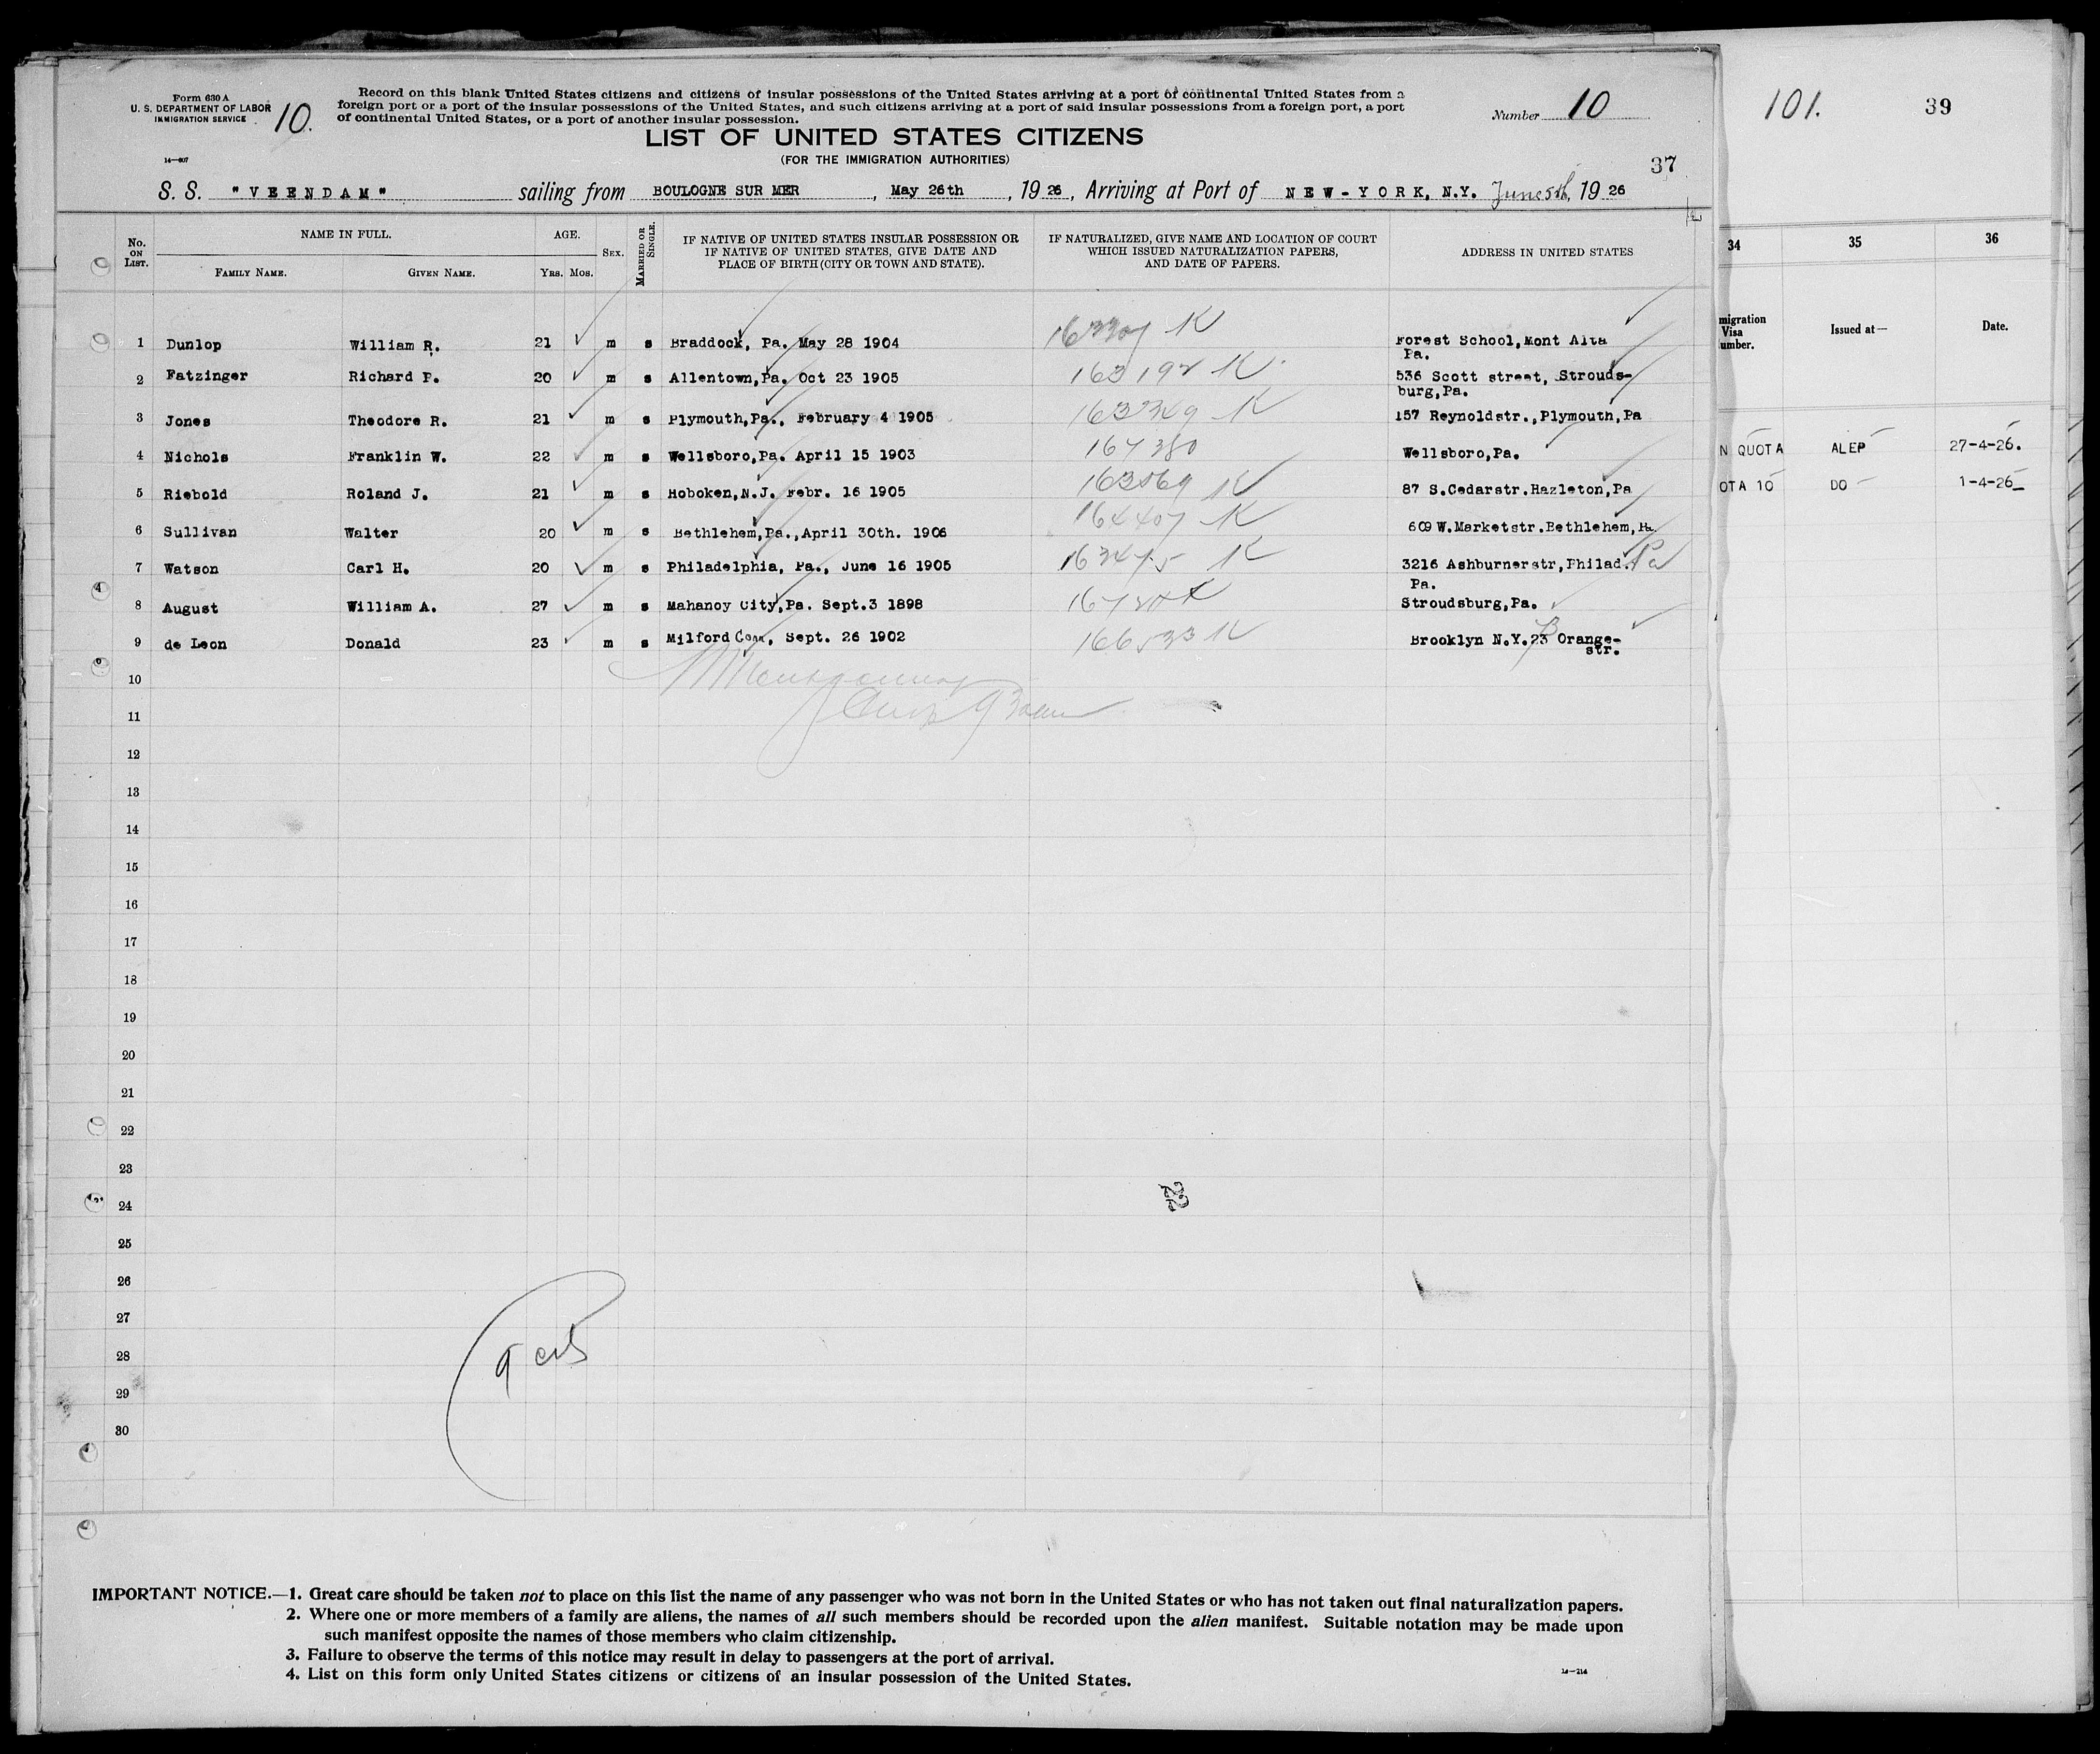 Form 630 A
U. S. DEPARTMENT OF LABOR
IMMIGRATION SERVICE
10.
14—607
Record on this blank United States citizens and citizens of insular possessions of the United States arriving at a port of continental United States from a
foreign port or a port of the insular possessions of the United States, and such citizens arriving at a port of said insular possessions from a foreign port, a port
of continental United States, or a port of another insular possession.
Number 10
LIST OF UNITED STATES CITIZENS
(FOR THE IMMIGRATION AUTHORITIES)
37
S. S. "VEENDAM" sailing from BOULOGNE SUR MER, May 26th, 1926, Arriving at Port of NEW-YORK, N.Y. June 5th, 1926
No. ON LIST.
NAME IN FULL.
FAMILY NAME. GIVEN NAME.
AGE.
YRS. MOS.
SEX.
MARRIED OR SINGLE.
IF NATIVE OF UNITED STATES INSULAR POSSESSION OR
IF NATIVE OF UNITED STATES, GIVE DATE AND
PLACE OF BIRTH (CITY OR TOWN AND STATE).
IF NATURALIZED, GIVE NAME AND LOCATION OF COURT
WHICH ISSUED NATURALIZATION PAPERS,
AND DATE OF PAPERS.
ADDRESS IN UNITED STATES
1 Dunlop William R. 21 m s Braddock, Pa. May 28 1904 K Forest School, Mont Alta
Pa.
2 Fatzinger Richard P. 20 m s Allentown, Pa. Oct 23 1905 163192 K 536 Scott street, Strouds-
burg, Pa.
3 Jones Theodore R. 21 m s Plymouth, Pa., February 4 1905 163349 K 157 Reynoldstr., Plymouth, Pa
4 Nichols Franklin W. 22 m s Wellsboro, Pa. April 15 1903 167380 Wellsboro, Pa.
5 Riebold Roland J. 21 m s Hoboken, N.J. Febr. 16 1905 163569 K 87 S. Cedarstr. Hazleton, Pa
6 Sullivan Walter 20 m s Bethlehem, Pa., April 30th. 1906 164407 K 609 W. Marketstr. Bethlehem, Pa.
7 Watson Carl H. 20 m s Philadelphia, Pa., June 16 1905 163475 K 3216 Ashburnerstr, Philad. Pa
Pa.
8 August William A. 27 m s Mahanoy City, Pa. Sept. 3 1898 K Stroudsburg, Pa.
9 de Leon Donald 23 m s Milford Conn, Sept. 26 1902 166533 K Brooklyn N.Y. 23 Orange-
str.
10
11
12
13
14
15
16
17
18
19
20
21
22
23
24
25
26
27
28
29
30
IMPORTANT NOTICE.—1. Great care should be taken not to place on this list the name of any passenger who was not born in the United States or who has not taken out final naturalization papers.
2. Where one or more members of a family are aliens, the names of all such members should be recorded upon the alien manifest. Suitable notation may be made upon
such manifest opposite the names of those members who claim citizenship.
3. Failure to observe the terms of this notice may result in delay to passengers at the port of arrival.
4. List on this form only United States citizens or citizens of an insular possession of the United States.
14—214
101. 39
34 35 36
migration
Visa
umber.
Issued at—
Date.
N QUOTA ALEP 27-4-26.
OTA 10 DO 1-4-26